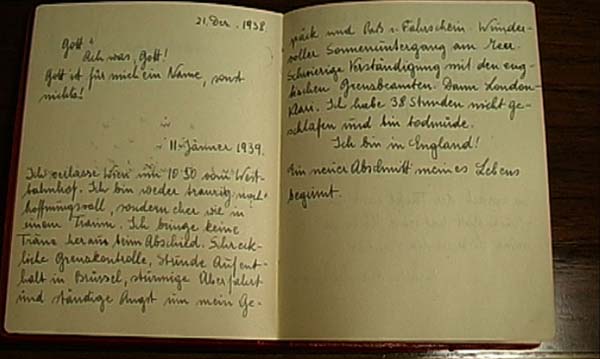 21. Dez. 1938.
Gott"
Ach was, Gott!
Gott ist für mich ein Name, sonst
nichts!
11. Jänner 1939.
Ich verlasse Wien um 10 50 vom West-
bahnhof. Ich bin weder traurig noch
hoffnungsvoll, sondern eher wie in
einem Traum. Ich bringe keine
Träne heraus beim Abschied. Schreck-
liche Grenzkontrolle, Stunde Aufent-
halt in Brüssel, stürmige Überfahrt
und ständige Angst um mein Ge-
päck und Paß u. Fahrschein. Wunder-
voller Sonnenuntergang am Meer.
Schwierige Verständigung mit den eng-
lischen Grenzbeamten. Dann London-
Ich habe 38 Stunden nicht ge-
schlafen und bin todmüde.
Ich bin in England!
Ein neuer Abschnitt meines Lebens
beginnt.